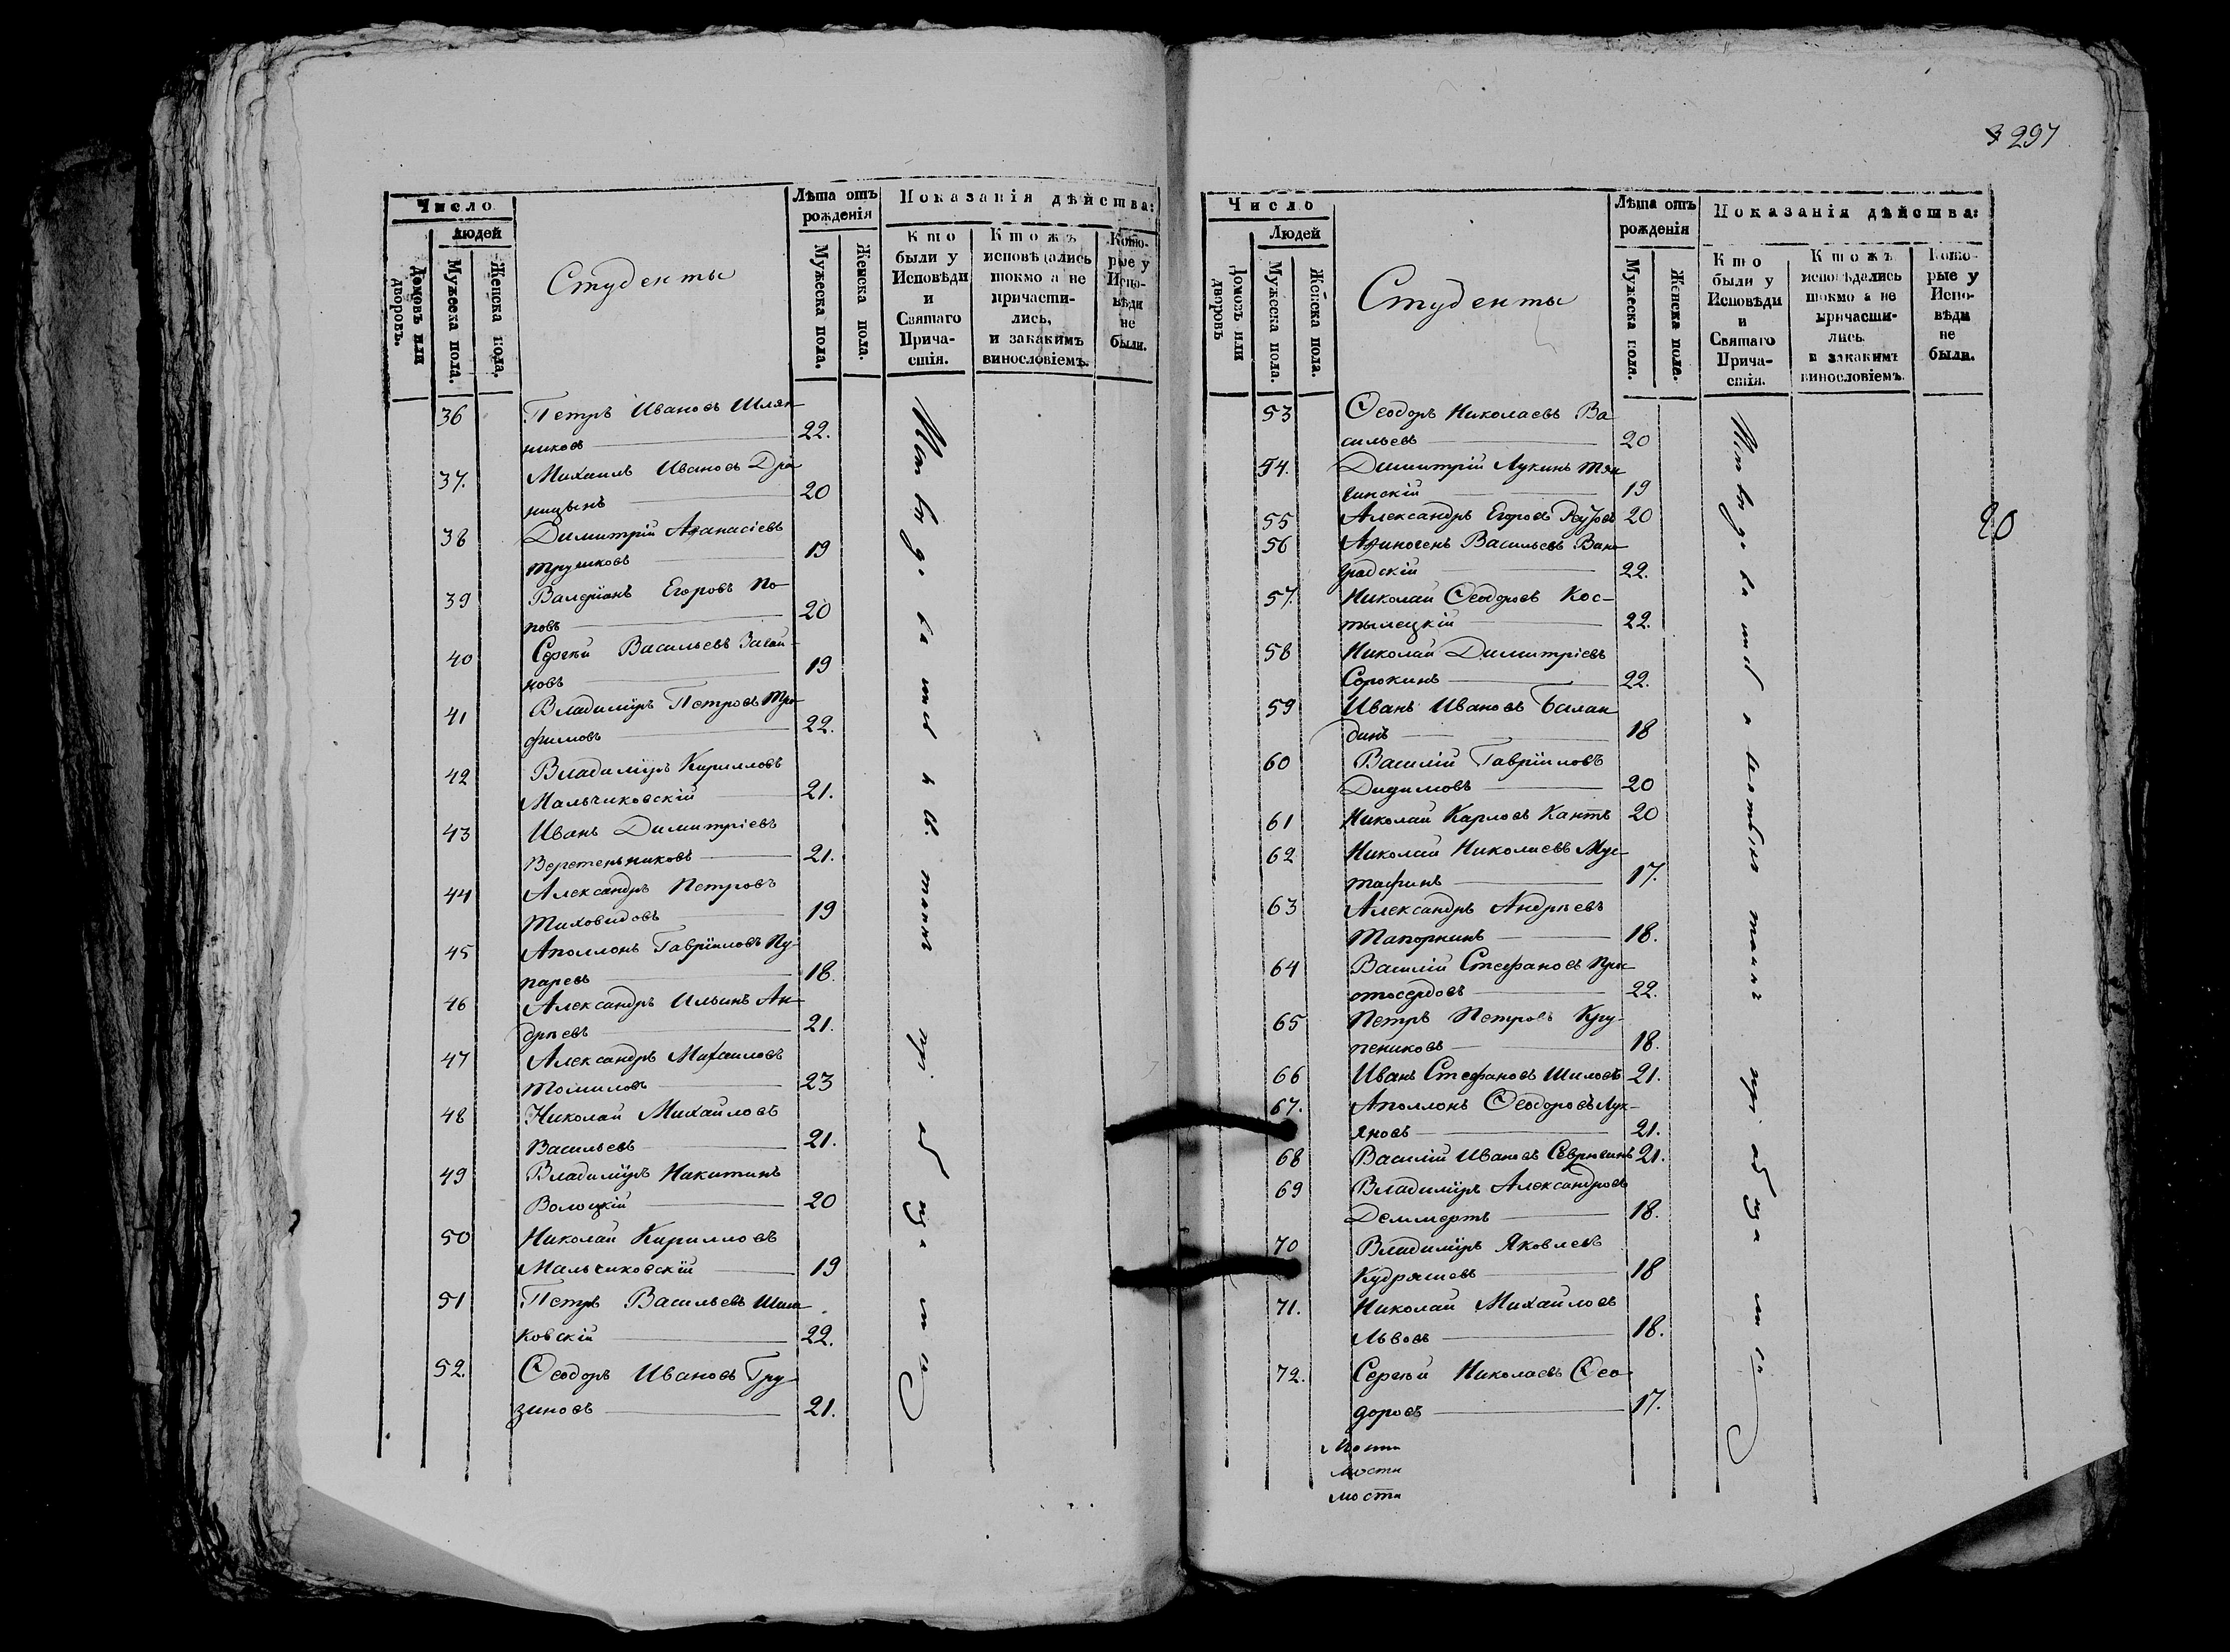 Число
людей
Домовъ или дворовъ.
Мужеска пола.
Женска пола.
Студенты
Лѣта отъ рожденія
Мужеска пола.
Женска пола.
Показанія дѣйства:
Кто были у Исповѣди и Святаго Прича-стія.
Ктожъ исповѣдались токмо а не причасти-лись, и закакимъ винословіемъ.
Кото-рые у Испо-вѣди не были.
36 Петръ Ивановъ Шляп-
никовъ 22.
37. Михаилъ Ивановъ Дра-
ницынъ 20
38 Димитрій Аѳанасіевъ
Трушковъ 19
39 Валеріанъ Егоровъ По-
повъ 20
40 Сергѣй Васильевъ Загай-
новъ 19
41 Владиміръ Петровъ Тро-
фимовъ 22.
42 Владиміръ Кирилловъ
Мальчиковскій 21.
43 Иванъ Димитріевъ
Веретенниковъ 21.
44 Александръ Петровъ
Тиховидовъ 19
45 Аполлонъ Гавріиловъ Пу-
паревъ 18.
46 Александръ Ильинъ Ан-
дреевъ 21.
47 Александръ Михаиловъ
Томиловъ 23
48 Николай Михайловъ
Васильевъ 21.
49 Владиміръ Никитинъ
Волоцкій 20
50 Николай Кирилловъ
Мальчиковскій 19
51 Петръ Васильевъ Шиш-
ковскій 22.
52. Ѳеодоръ Ивановъ Гру-
зиновъ 21.
297
Число
Людей
Домовъ или дворовъ
Мужеска пола.
Женска пола.
Студенты
Лѣта отъ рожденія
Мужеска пола.
Женска пола.
Показанія дѣйства:
Кто были у Исповѣди и Святаго Прича-стія.
Ктожъ исповѣдались токмо а не причасти-лись. и закакимъ винословіемъ.
Кото-рые у Испо-вѣди не были.
53 Ѳеодоръ Николаевъ Ва-
сильевъ 20
54. Димитрій Лукинъ
19
20
55 Александръ Егоровъ 20
56 Аѳиногенъ Васильевъ Вино-
градскій 22.
57. Николай Ѳеодоровъ Кос-
тылецкій 22.
58 Николай Димитріевъ
Сорокинъ 22.
59 Иванъ Ивановъ Балан-
динъ 18
60 Василій Гавріиловъ
Дидимовъ 20
61 Николай Карловъ Кантъ 20
62 Николай Николаевъ Мус-
тафинъ 17.
63 Александръ Андреевъ
Тапоркинъ 18.
64 Василій Стефановъ Прос-
тосердовъ 22.
65 Петръ Петровъ Кру-
пениковъ 18.
66 Иванъ Стефановъ Шиловъ 21.
67. Аполлонъ Ѳеодоровъ Лук-
яновъ 21.
68 Василій Ивановъ Севрюгинъ 21.
69 Владиміръ Александровъ
Деммертъ 18.
70 Владиміръ Яковлевъ
Кудряшевъ 18
71. Николай Михайловъ
Львовъ 18.
72. Сергѣй Николаевъ Ѳео-
доровъ 17.
мости
мости
мости